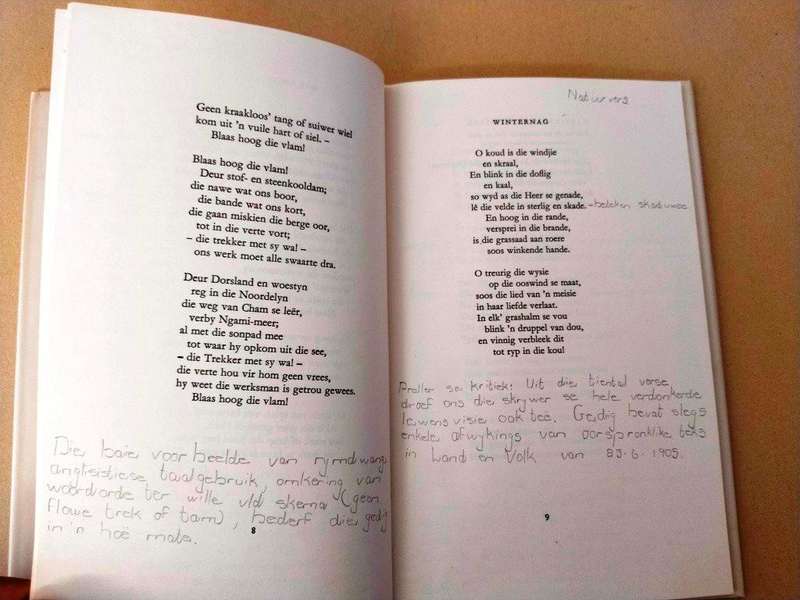 Geen kraakloos' tang of suiwer wiel
kom uit 'n vuile hart of siel. –
Blaas hoog die vlam!
Blaas hoog die vlam!
Deur stof- en steenkooldam;
die nawe wat ons boor,
die bande wat ons kort,
die gaan miskien die berge oor,
tot in die verte vort;
– die trekker met sy wa! –
ons werk moet alle swaarte dra.
Deur Dorsland en woestyn
reg in die Noordelyn
die weg van Cham se leër,
verby Ngami-meer;
al met die sonpad mee
tot waar hy opkom uit die see,
– die Trekker met sy wa! –
die verte hou vir hom geen vrees,
hy weet die werksman is getrou gewees.
Blaas hoog die vlam!
Die baie voorbeelde van rymdwang
anglisistiese taalgebruik, omkering van
woordorde ter wille v/d skema (geen
flowe trek of tam), bederf die gedig
in 'n hoë mate.
8
Natuurvers
WINTERNAG
O koud is die windjie
en skraal,
En blink in die doflig
en kaal,
so wyd as die Heer se genade,
lê die velde in sterlig en skade. - beteken skaduwee
En hoog in die rande,
versprei in die brande,
is die grassaad aan roere
soos winkende hande.
O treurig die wysie
op die ooswind se maat,
soos die lied van 'n meisie
in haar liefde verlaat.
In elk' grashalm se vou
blink 'n druppel van dou,
en vinnig verbleek dit
tot ryp in die kou!
Preller se kritiek: Uit die tiental verse
droef ons die skrywer se hele verdonkerde
lewensvisie ook toe. Gedig bevat slegs
enkele afwykings van oorspronklike teks
in Land en Volk van 23.6.1905.
9